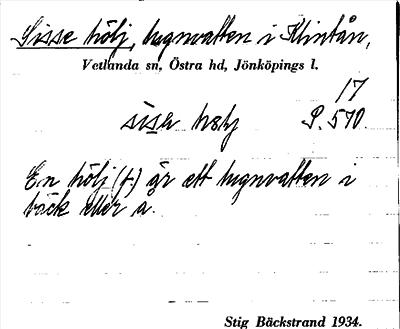 Sisse hölj, lugnvatten i Klintån,
Vetlanda sn, Östra hd, Jönköpings l.
17
sisa høly P. 570.
En hölj (f.) är ett lugnvatten i
bäck eller å.
Stig Bäckstrand 1934.